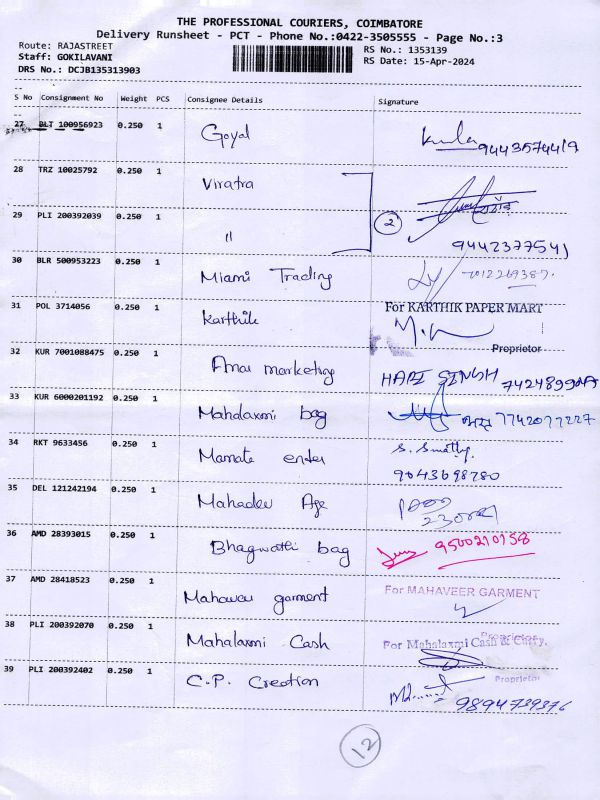 THE PROFESSIONAL COURIERS, COIMBATORE
Delivery Runsheet - PCT - Phone No.:0422-3505555 - Page No.:3
Route: RAJASTREET
RS No.: 1353139
Staff: GOKILAVANI
RS Date: 15-Apr-2024
DRS No.: DCJB135313903
S No Consignment No Weight PCS Consignee Details Signature
27 BLT 100956923 0.250 1 Goyal 9443574419
28 TRZ 10025792 0.250 1 Viratra
29 PLI 200392039 0.250 1 〃 2 9442377541
30 BLR 500953223 0.250 1 Miami Trading
31 POL 3714056 0.250 1 Karthik For KARTHIK PAPER MART
Proprietor
32 KUR 7001088475 0.250 1 marketing HARI SINGH
33 KUR 6000201192 0.250 1 Mahalaxmi bag 7742077227
34 RKT 9633456 0.250 1 Mamate enter S. Smathy.
9043698780
35 DEL 121242194 0.250 1 Mahadev Age
36 AMD 28393015 0.250 1 Bhagwathi bag 9500210158
37 AMD 28418523 0.250 1 garment For MAHAVEER GARMENT
Proprietor
38 PLI 200392070 0.250 1 Mahalaxmi Cash For Mahalaxmi Cash & Carry.
Proprietor
39 PLI 200392402 0.250 1 C.P. Creation 9894739376
12